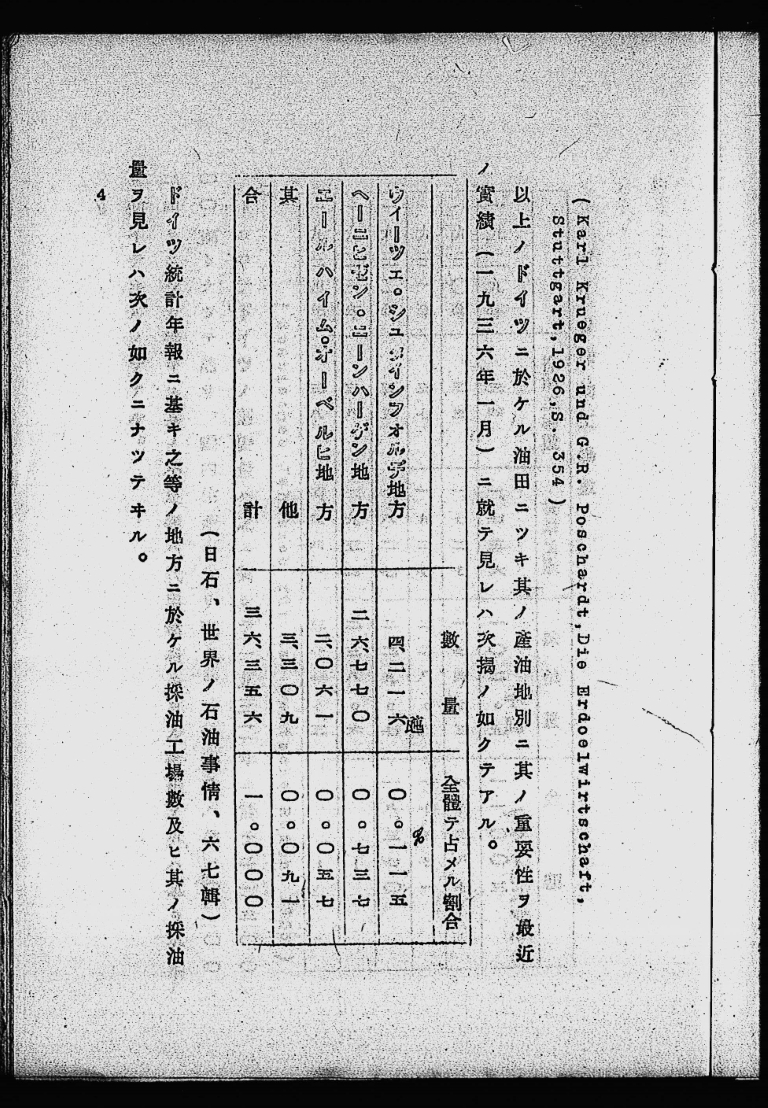 (Karl Krueger und G.R. Poschardt,Die Erdoelwirtschaft,
Stuttgart,1926,S. 354)
以上ノドイツニ於ケル油田ニツキ其ノ產油地別ニ其ノ重要性ヲ最近
ノ實績(一九三六年一月)ニ就テ見レハ次揭ノ如クテアル。
數量 全體テ占メル割合
瓲 %
ウィーツェ。シュタインフォルデ地方 四、二一六 〇。一一五
ヘーニヒゼン。ニーンハーゲン地方 二六、七七〇 〇。七三七
エールハイム。オーベルヒ地方 二、〇六一 〇。〇五七
其他 三、三〇九 〇。〇九一
合計 三六、三五六 一。〇〇〇
(日石、世界ノ石油事情、六七輯)
ドイツ統計年報ニ基キ之等ノ地方ニ於ケル採油工場數及ヒ其ノ採油
量ヲ見レハ次ノ如クニナツテヰル。
4